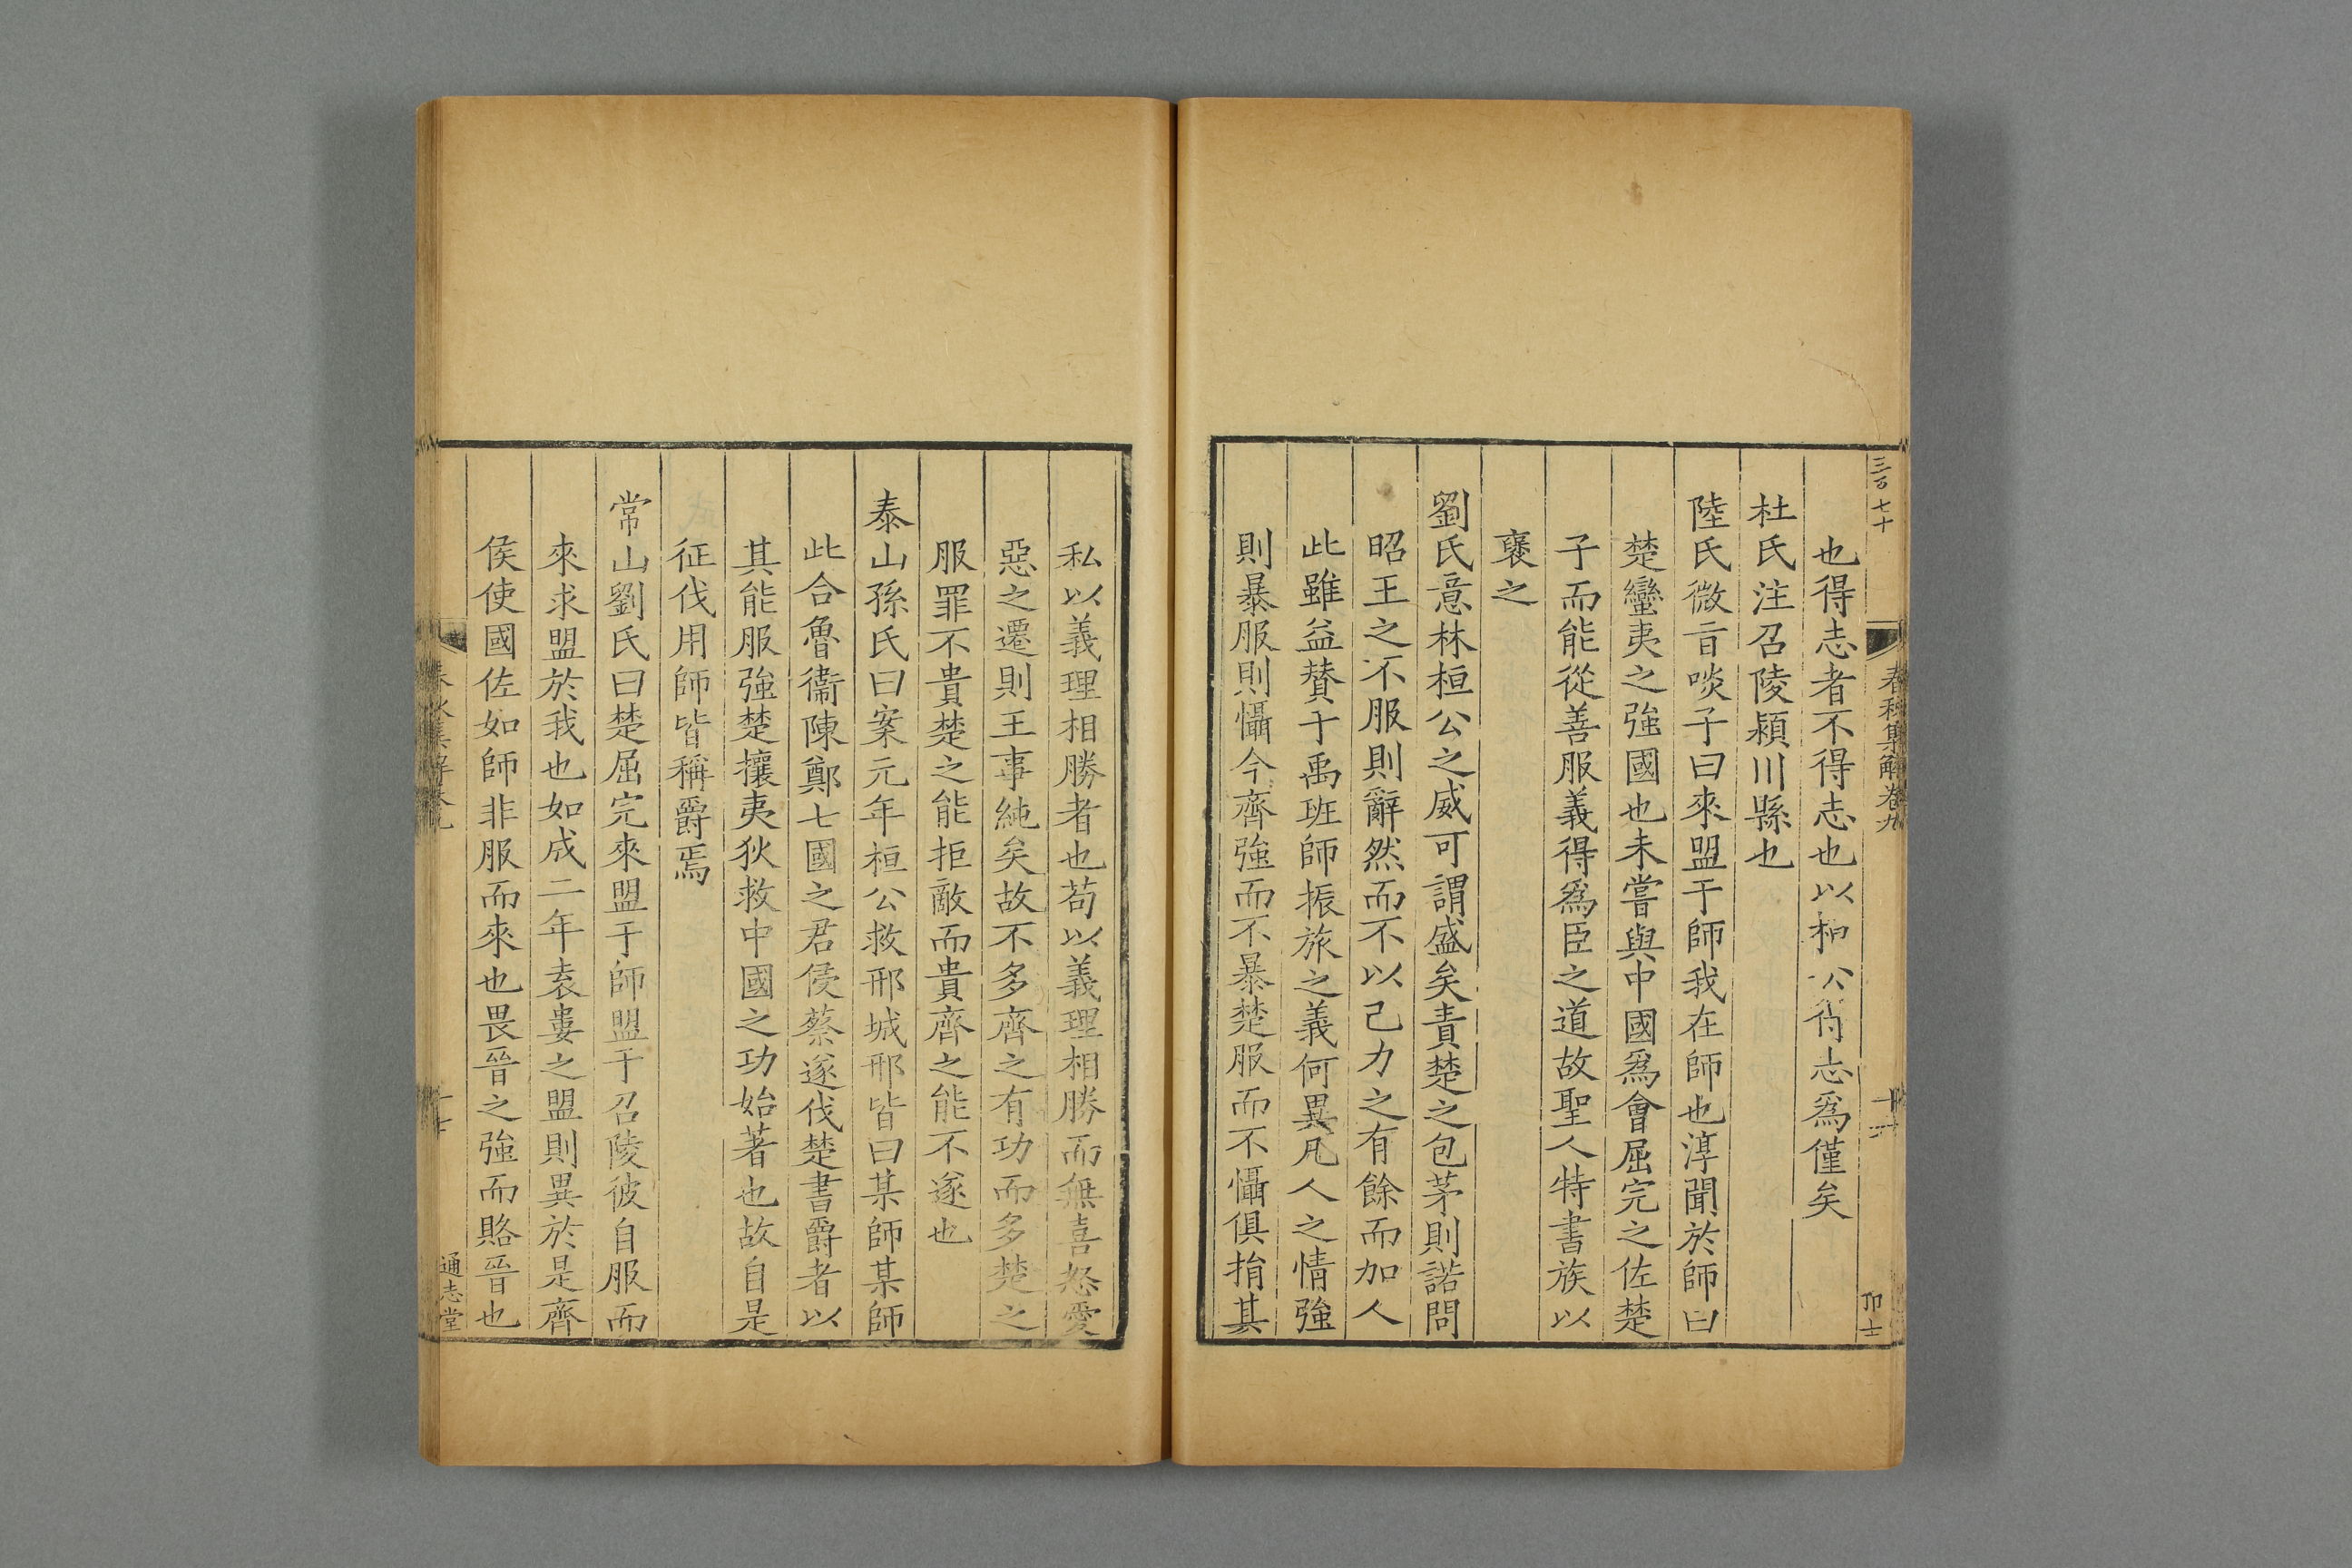 三百七十
春秋集解卷九
也得志者不得志也以桓公得志爲僅矣
杜氏注召陵潁川縣也
陸氏微旨啖子曰來盟于師我在師也淳聞於師曰
楚蠻夷之強國也未嘗與中國爲會屈完之佐楚
子而能從善服義得爲臣之道故聖人特書族以
襃之
劉氏意林桓公之威可謂盛矣責楚之包茅則諾問
昭王之不服則辭然而不以己力之有餘而加人
此雖益贊于禹班師振旅之義何異凡人之情強
則暴服則懾今齊強而不暴楚服而不懾俱揹其
私以義理相勝者也苟以義理相勝而無喜怒愛
惡之遷則王事純矣故不多齊之有功而多楚之
服罪不貴楚之能拒敵而貴齊之能不遂也
泰山孫氏曰案元年桓公救邢城邢皆曰某師某師
此合魯衞陳鄭七國之君侵蔡遂伐楚書爵者以
其能服強楚攘夷狄救中國之功始著也故自是
征伐用師皆稱爵焉
常山劉氏曰楚屈完來盟于師盟于召陵彼自服而
來求盟於我也如成二年袁婁之盟則異於是齊
侯使國佐如師非服而來也畏晉之強而賂晉也
通志堂